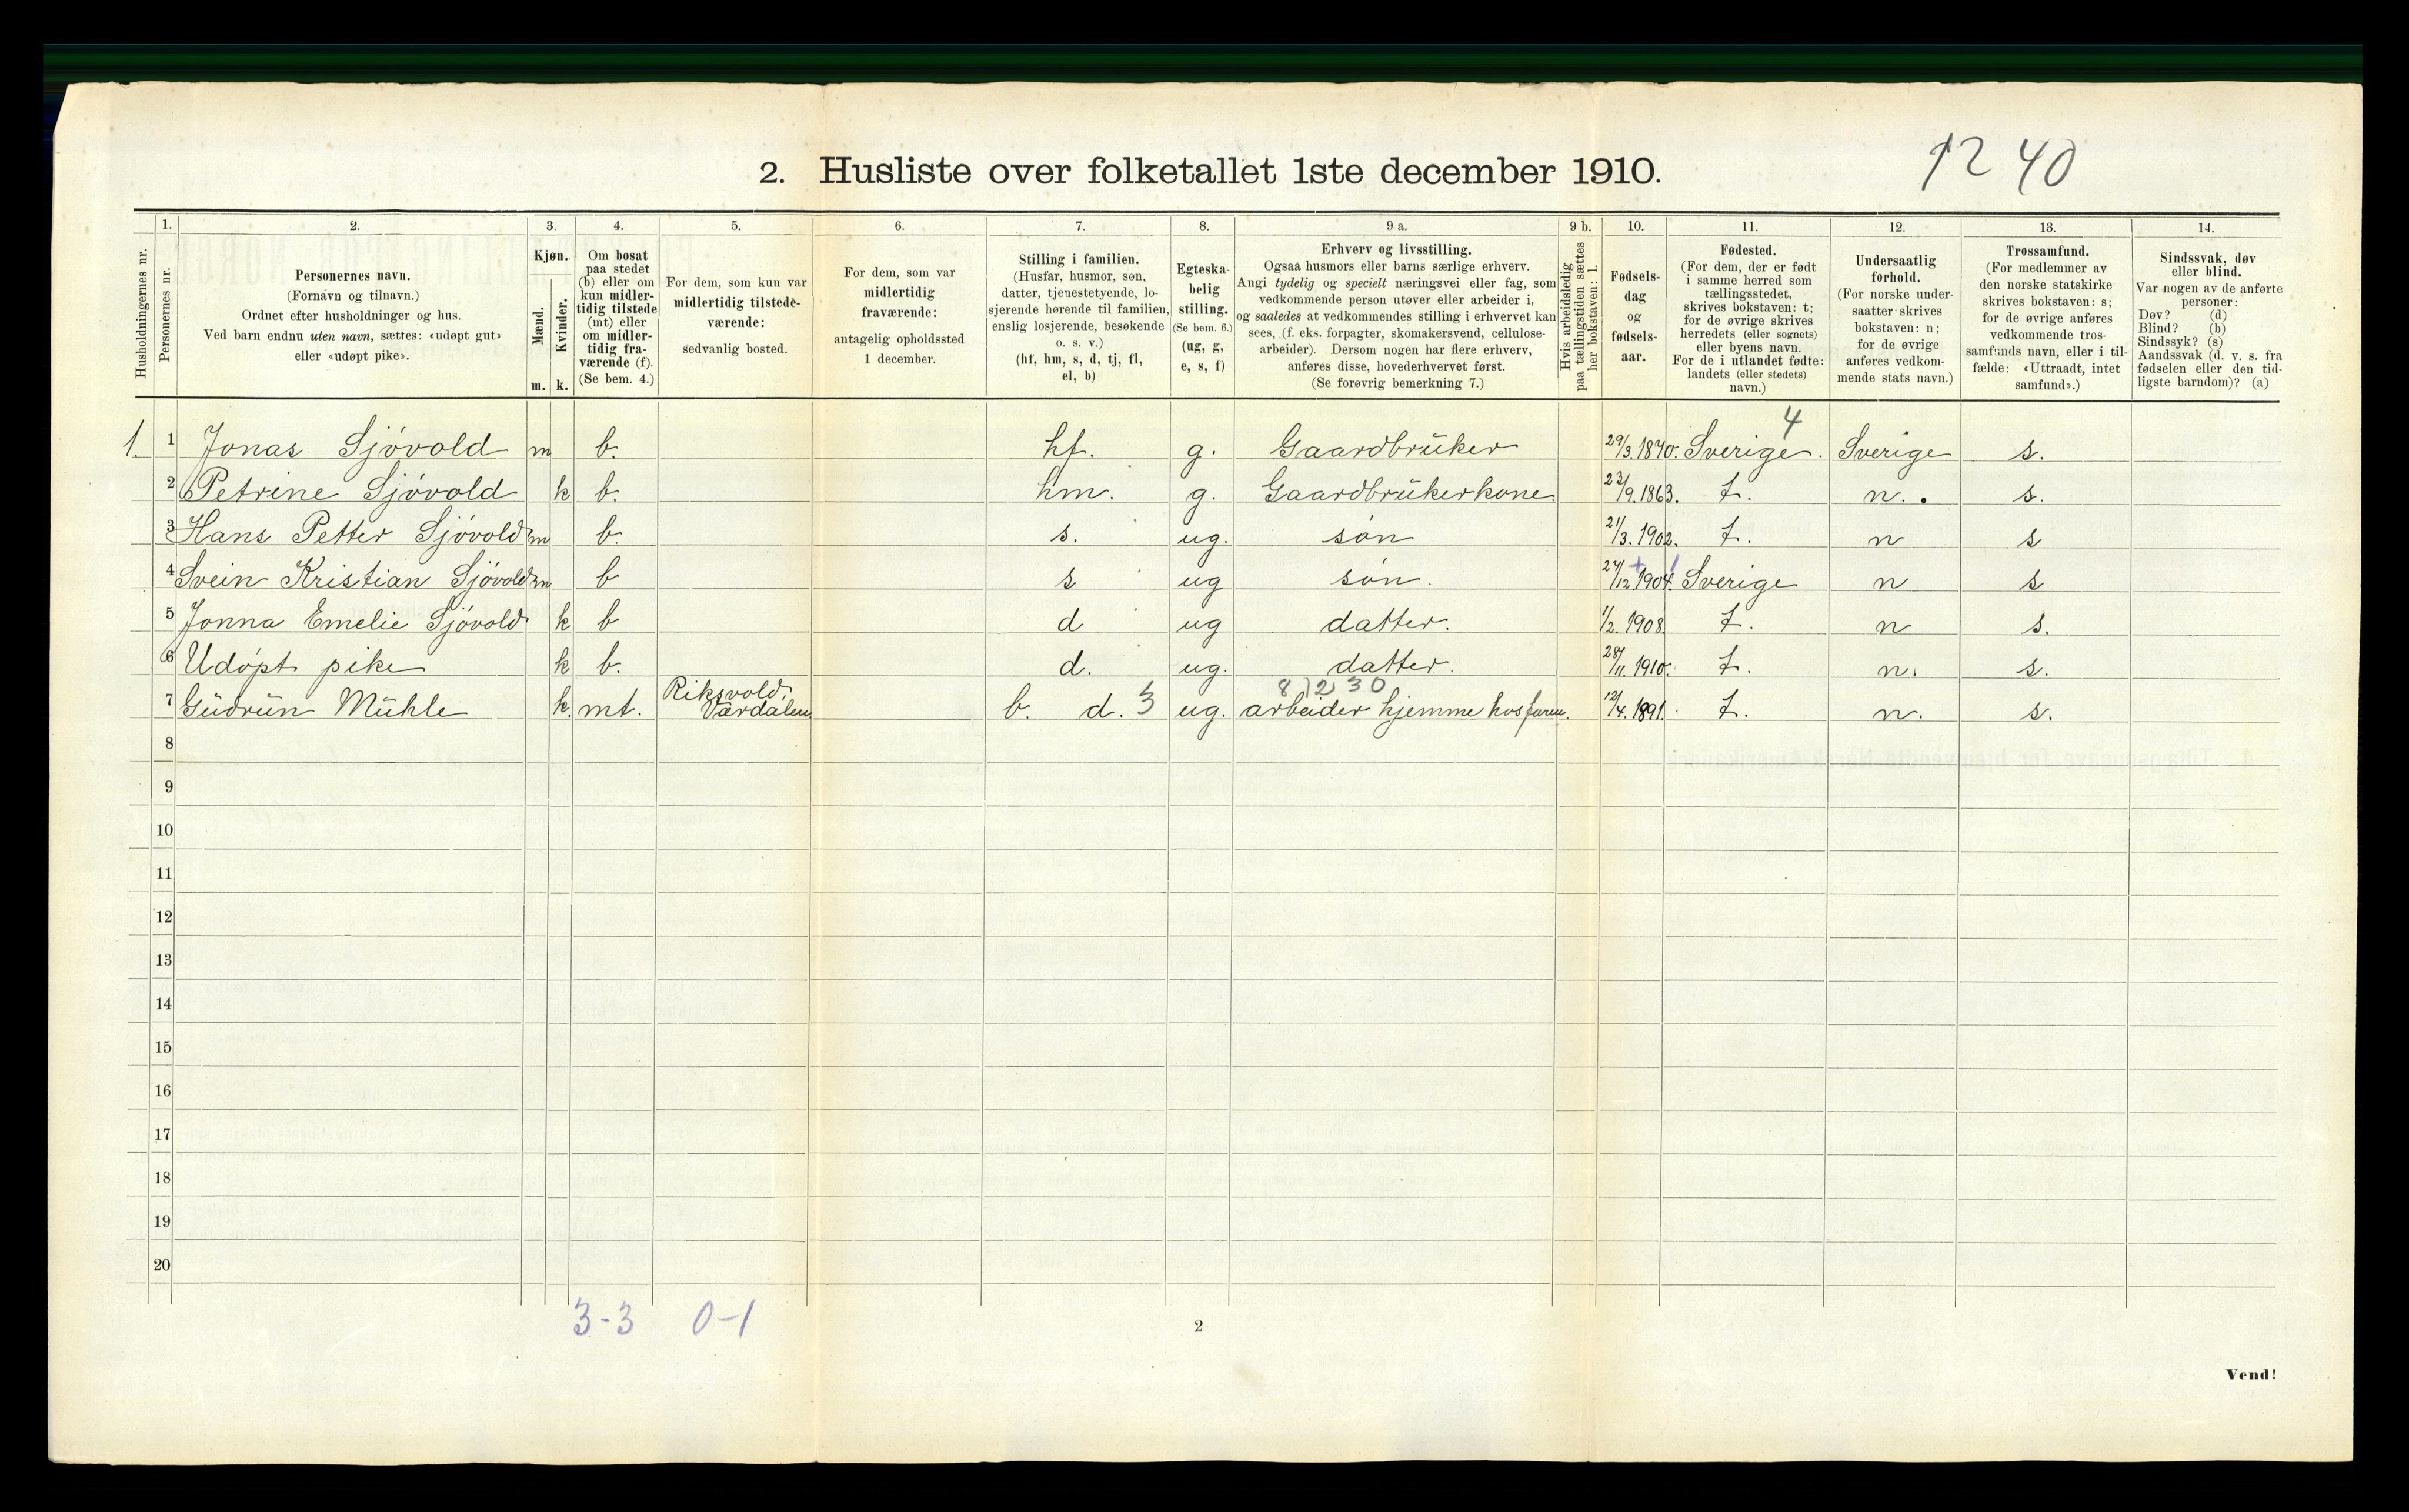 2. Husliste over folketallet 1ste december 1910.
1240
Husholdningernes nr.
1.
Personernes nr.
2.
Personernes navn.
(Fornavn og tilnavn.)
Ordnet efter husholdninger og hus.
Ved barn endnu uten navn, sættes: «udøpt gut»
eller «udøpt pike».
3.
Kjøn.
Mænd.
m.
Kvinder.
k.
4.
Om bosat
paa stedet
(b) eller om
kun midler-
tidig tilstede
(mt) eller
om midler-
tidig fra-
værende (f).
(Se bem. 4.)
5.
For dem, som kun var
midlertidig tilstede-
værende:
sedvanlig bosted.
6.
For dem, som var
midlertidig
fraværende:
antagelig opholdssted
1 december.
7.
Stilling i familien.
(Husfar, husmor, søn,
datter, tjenestetyende, lo-
sjerende hørende til familien,
enslig losjerende, besøkende
o. s. v.)
(hf, hm, s, d, tj, fl,
el, b)
8.
Egteska-
belig
stilling.
(Se bem. 6.)
(ug, g,
e, s, f)
9 a.
Erhverv og livsstilling.
Ogsaa husmors eller barns særlige erhverv.
Angi tydelig og specielt næringsvei eller fag, som
vedkommende person utøver eller arbeider i,
og saaledes at vedkommendes stilling i erhvervet kan
sees, (f. eks. forpagter, skomakersvend, cellulose-
arbeider). Dersom nogen har flere erhverv,
anføres disse, hovederhvervet først.
(Se forøvrig bemerkning 7.)
9 b.
Hvis arbeidsledig
paa tællingstiden sættes
her bokstaven: l.
10.
Fødsels-
dag
og
fødsels-
aar.
11.
Fødested.
(For dem, der er født
i samme herred som
tællingsstedet,
skrives bokstaven: t;
for de øvrige skrives
herredets (eller sognets)
eller byens navn.
For de i utlandet fødte:
landets (eller stedets)
navn.)
12.
Undersaatlig
forhold.
(For norske under-
saatter skrives
bokstaven: n;
for de øvrige
anføres vedkom-
mende stats navn.)
13.
Trossamfund.
(For medlemmer av
den norske statskirke
skrives bokstaven: s;
for de øvrige anføres
vedkommende tros-
samfunds navn, eller i til-
fælde: «Uttraadt, intet
samfund».)
14.
Sindssvak, døv
eller blind.
Var nogen av de anførte
personer:
Døv? (d)
Blind? (b)
Sindssyk? (s)
Aandssvak (d. v. s. fra
fødselen eller den tid-
ligste barndom)? (a)
4
1. 1 Jonas Sjövold m b. hf. g. Gaardbrüker 29/3.1870. Sverige. Sverige s.
2 Petrine Sjövold k b. hm. g. Gaardbrükerkone. 23/9.1863. t. n. s.
3 Hans Petter Sjövold m b. s. ug. sön 21/3.1902. t. n s
4 Svein Kristian Sjövold m b s ug sön. 27/12 1904. Sverige n s
5 Jonna Emelie Sjövold k b d ug datter. 1/2.1908. t. n s.
6 Udöpt pike k b. d. ug. datter. 28/11.1910. t. n. s.
7 Güdrün Mühle k. mt. Riksvold, Værdalen. b. d. 3 ug. 81230 arbeider hjemme hos faren. 12/4.1891. t. n. s.
8
9
10
11
12
13
14
15
16
17
18
19
20
3-3 0-1
2
Vend!